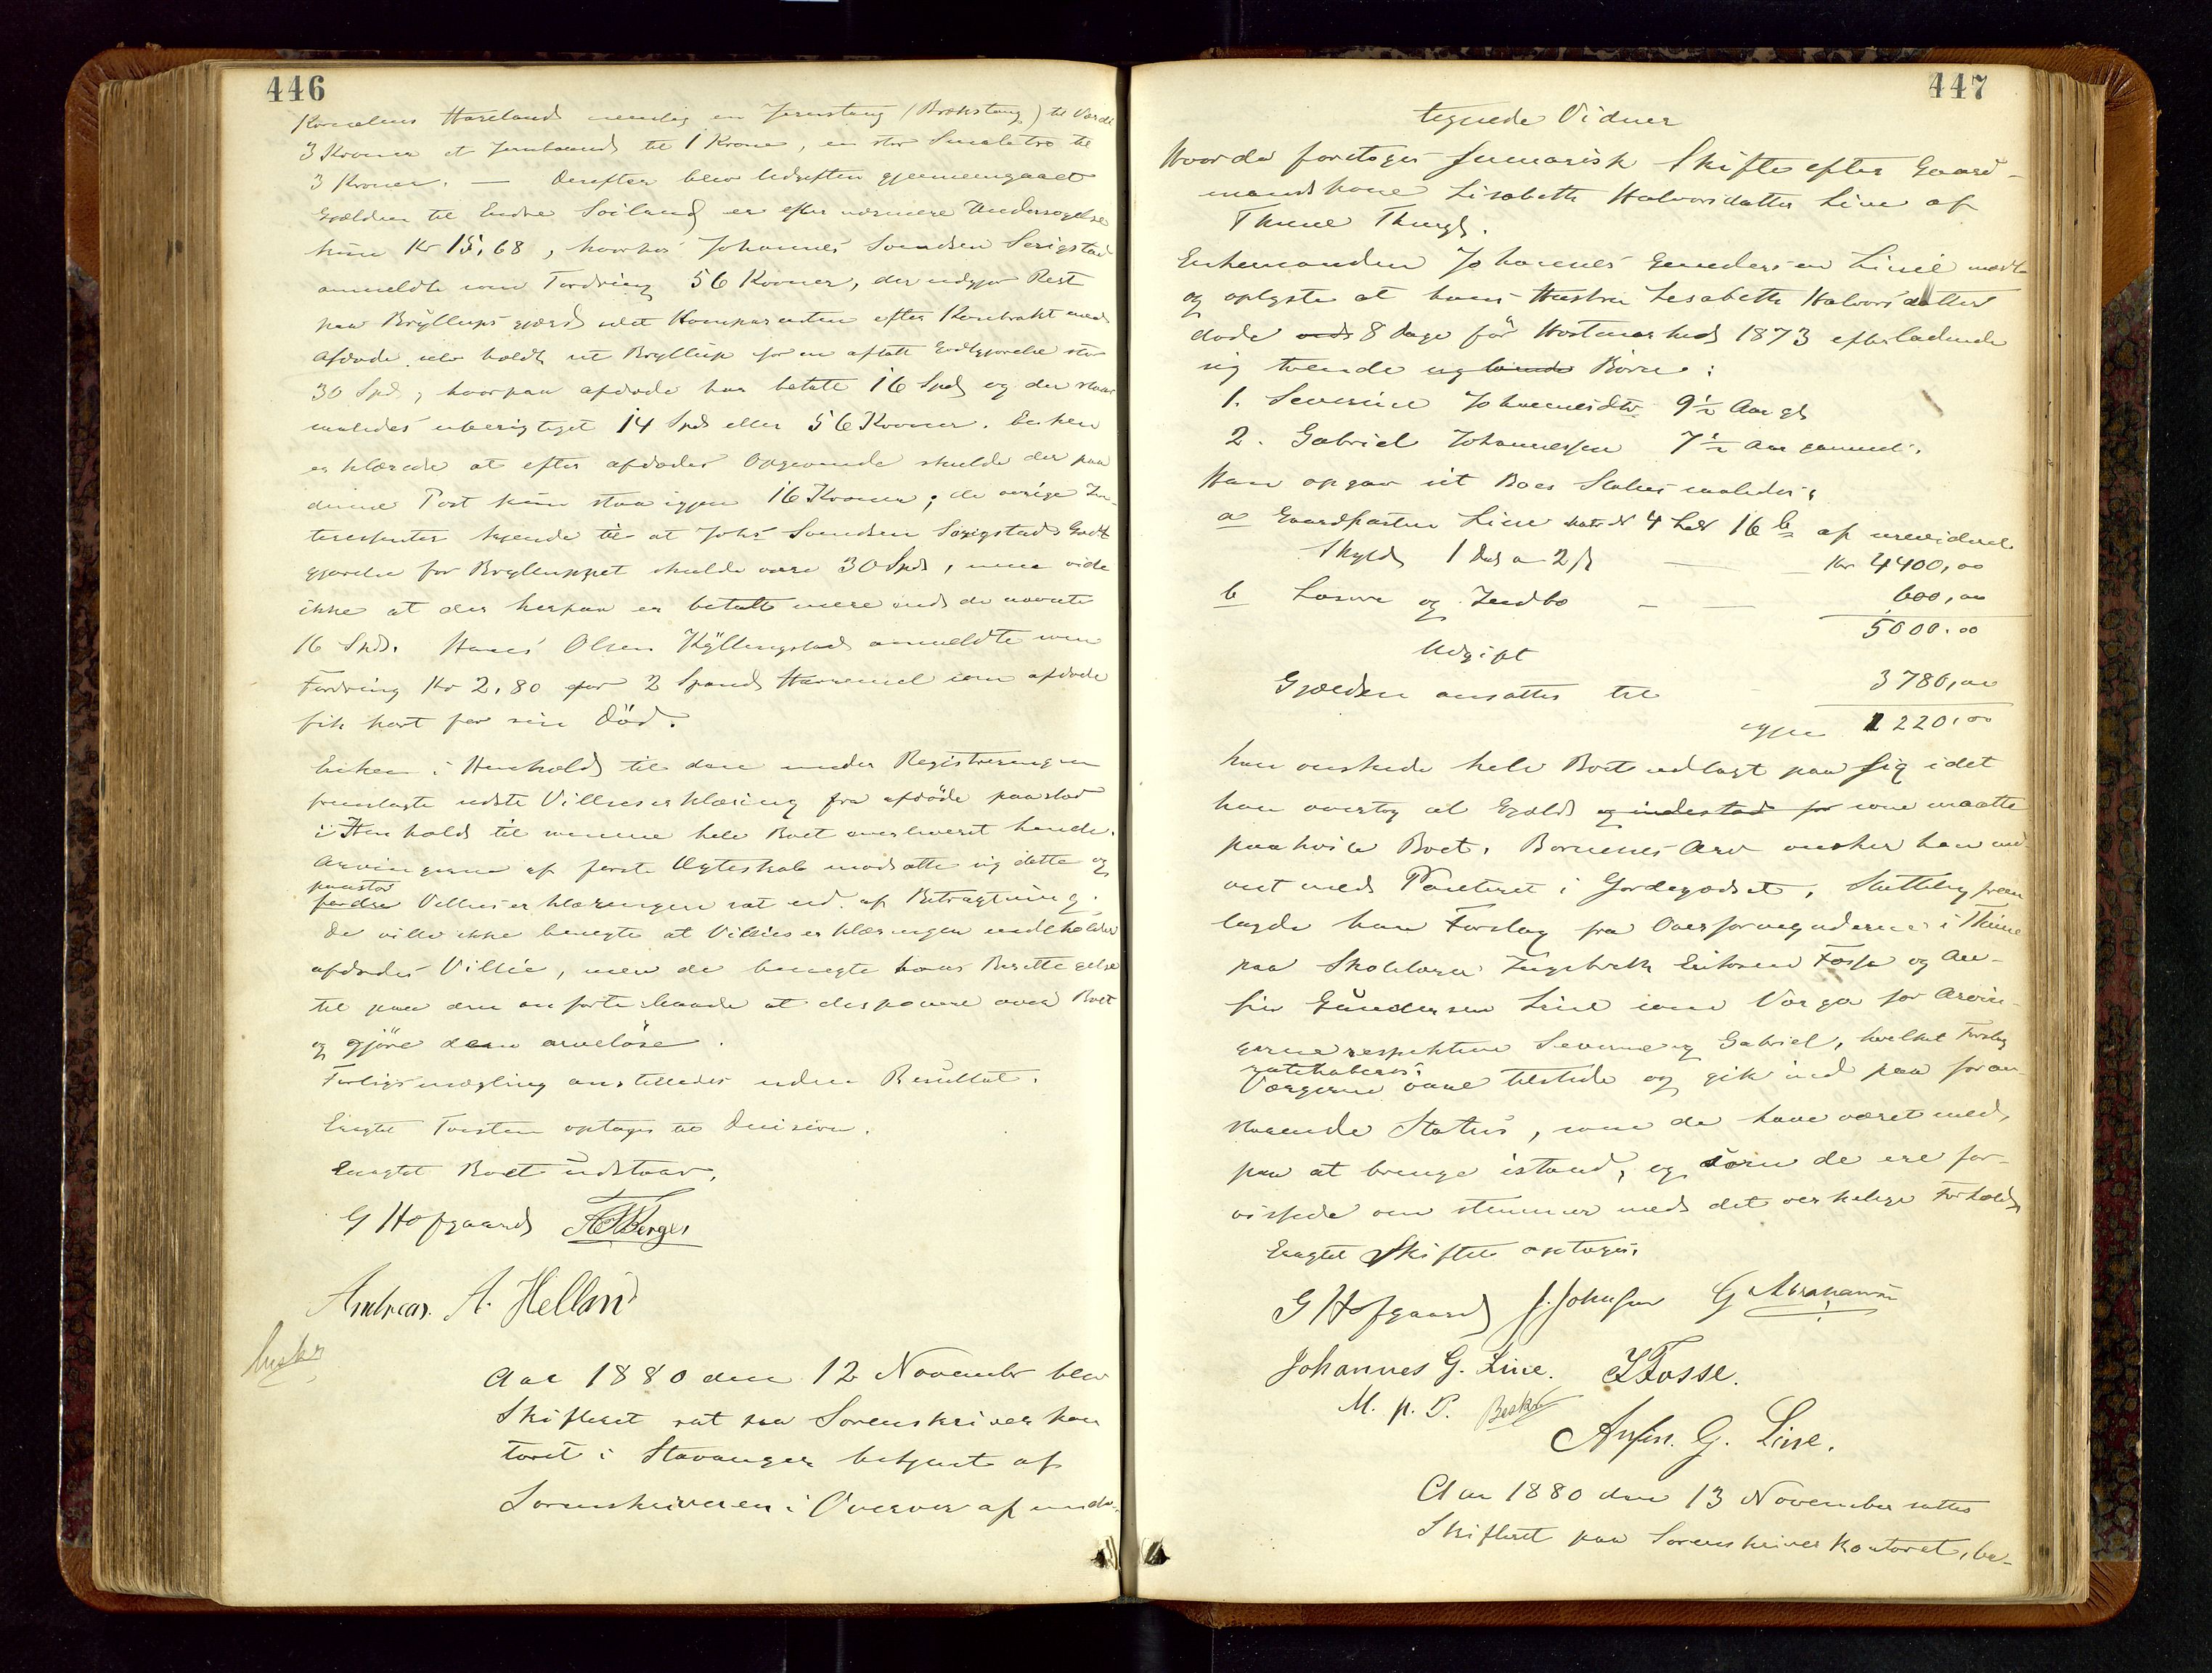 446
Kornelius Harelands nemlig en Jernstang (Brækstang) til Værdi
3 Kroner et Jernbaand til 1 Krone, en stor til
3 Kroner. — Derefter blev Udgiften gjennemgaaet
Gjælden til Endre Soiland er efter nærmere Undersøgelse
kun Kr 15,68, hvorhos Johannes Svendsen Serigstad
anmeldte som Fordring 56 Kroner, der udgjør Rest
paa Bryllups idet Komparenten efter Kontrakt med
Afdøde selv holdt et Bryllup for en aftalt Godtgjørelse stor
30 Spd, hvorpaa afdøde har betalt 16 Spd og der staar
saaledes uberigtiget 14 Spd eller 56 Kroner. Enken
erklærede at efter afdødes Opgivende skulde der paa
denne Post kun staa igjen 16 Kroner; de øvrige In-
teressenter til at Johs Svendsen Serigstads Godt
gjørelse for Brylluppet skulde være 30 Spd, men vide
ikke at der herpaa er betalt mere end de nævnte
16 Spd. Hans Olsen Kyllingstad anmeldte som
Fordring Kr 2,80 for 2 Spand Havremel som afdøde
fik kort før sin Död.
Enken i Henhold til den under Registreringen
fremlagte sidste Villieserklæring fra afdöde paastod
i Henhold til samme hele Boet overleveret hende.
Arvingerne af første Ægteskab modsatte sig dette og
paastod
fordre Villieserklæringen sat ud af Betragtning.
De ville ikke benegte at Villieserklæringen indeholder
afdødes Villie, men de benegte hans Berettigelse
til paa den anførte Maade at disponere over Boet
og gjöre dem arveløse.
Forligsmægling anstilledes uden Resultat.
Eragtet Tvisten optages til Decision.
Eragtet Boet udstaar.
G Hofgaard A T Berges
Andreas A. Helland
beskr
Aar 1880 den 12 November blev
Skifteret sat paa Sorenskriverkon
toret i Stavanger betjent af
Sorenskriveren i Overvær af unde-
447
tegnede Vidner
Hvorda foretoges Sumarisk Skifte efter Gaard-
mandskone Lisabeth Halvorsdatter Line af
Thime Thingl.
Enkemanden Johannes Gundersen Line mødte
og oplyste at hans Hustru Lisabeth Halvorsdatter
døde ved 8 Dage før Høstmarked 1873 efterladende
sig tvende Børn:
1. Severine Johannesdtr 9½ Aar gl
2. Gabriel Johannessen 7½ Aar gammel.
Han opgav sit Boes Status saaledes:
a Gaardparten Line Matr No 4 Lnr 16 b af urevideret
Skyld 1 Dal 2 β — Kr 4400,00
b Løsøre og Indbo — — 600,00
5000.00
Udgift
Gjælden ansattes til 3780,00
igjen 1220,00
han ønskede hele Boet udlagt paa sig idet
han overtog al Gjæld og indestod for som maatte
paahvile Boet. Børnenes Arv ønsker han ud-
vist med Panteret i Jordegodset. Sluttelig frem
lagde han Forslag fra Overformynderne i Thime
paa Skolelærer Ingebreth Eriksen Fosse og An-
fin Gundersen Line som Værger for Arvin-
gerne respektive Severine og Gabriel, hvilket Forslag
ratihaberes.
Værgerne vare tilstede og gik ind paa foran-
staaende Status, som de have været med
paa at bringe istand, og som de ere for-
vissede om stemmer med det verkelige Forhold.
Eragtet Skiftet optages.
G Hofgaard J. Johnsen G Abrahamsen
Johannes G. Line. I Fosse.
M. p. P. Beskr
Anfin. G. Line.
Aar 1880 den 13 November sattes
Skifteret paa Sorenskriverkontoret, be-